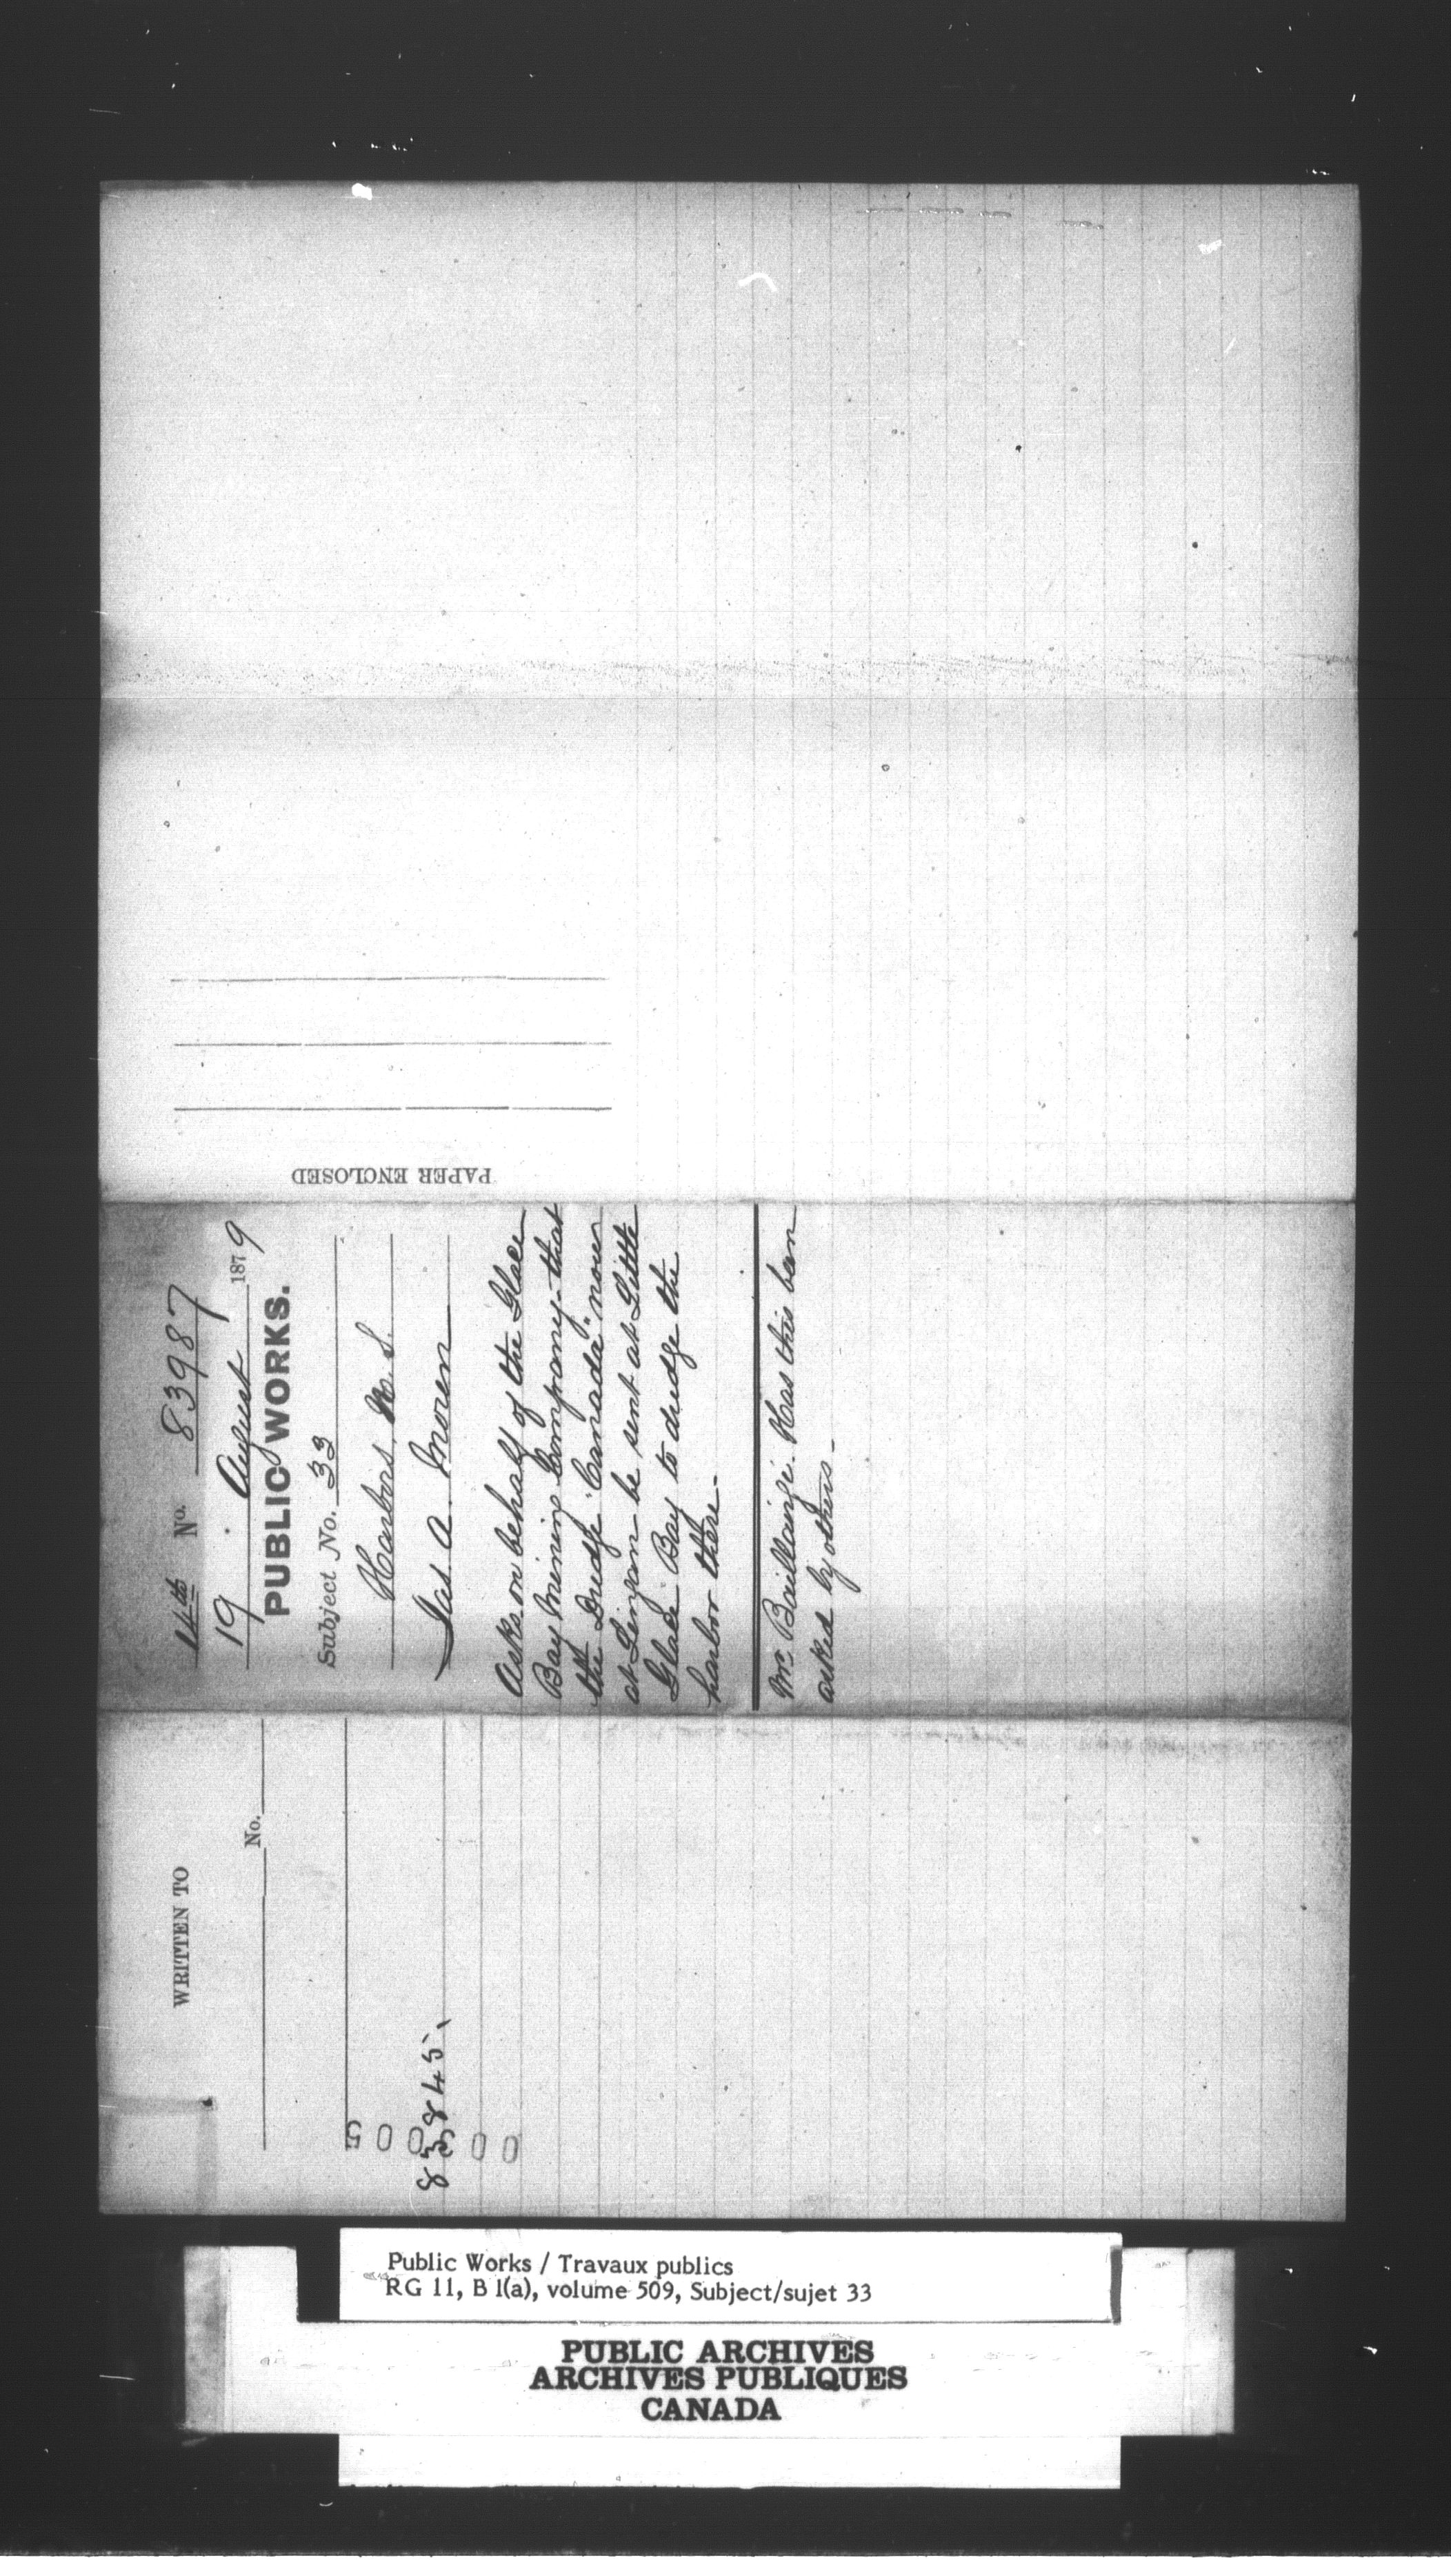 PAPER ENCLOSED
14th No. 83987
19 August 1879
PUBLIC WORKS.
Subject No. 33
Harbors N. S.
Jas A. Moren
Asks on behalf of the Glace
Bay Mining Company that
the Dredge "Canada" now
at Lingan be sent at Little
Glace Bay to dredge the
harbor there.
Mr. Baillairgé. Has this been
asked by others.
WRITTEN TO
No.
83845
Public Works / Travaux publics
RG 11, B 1(a), volume 509, Subject/sujet 33
PUBLIC ARCHIVES
ARCHIVES PUBLIQUES
CANADA